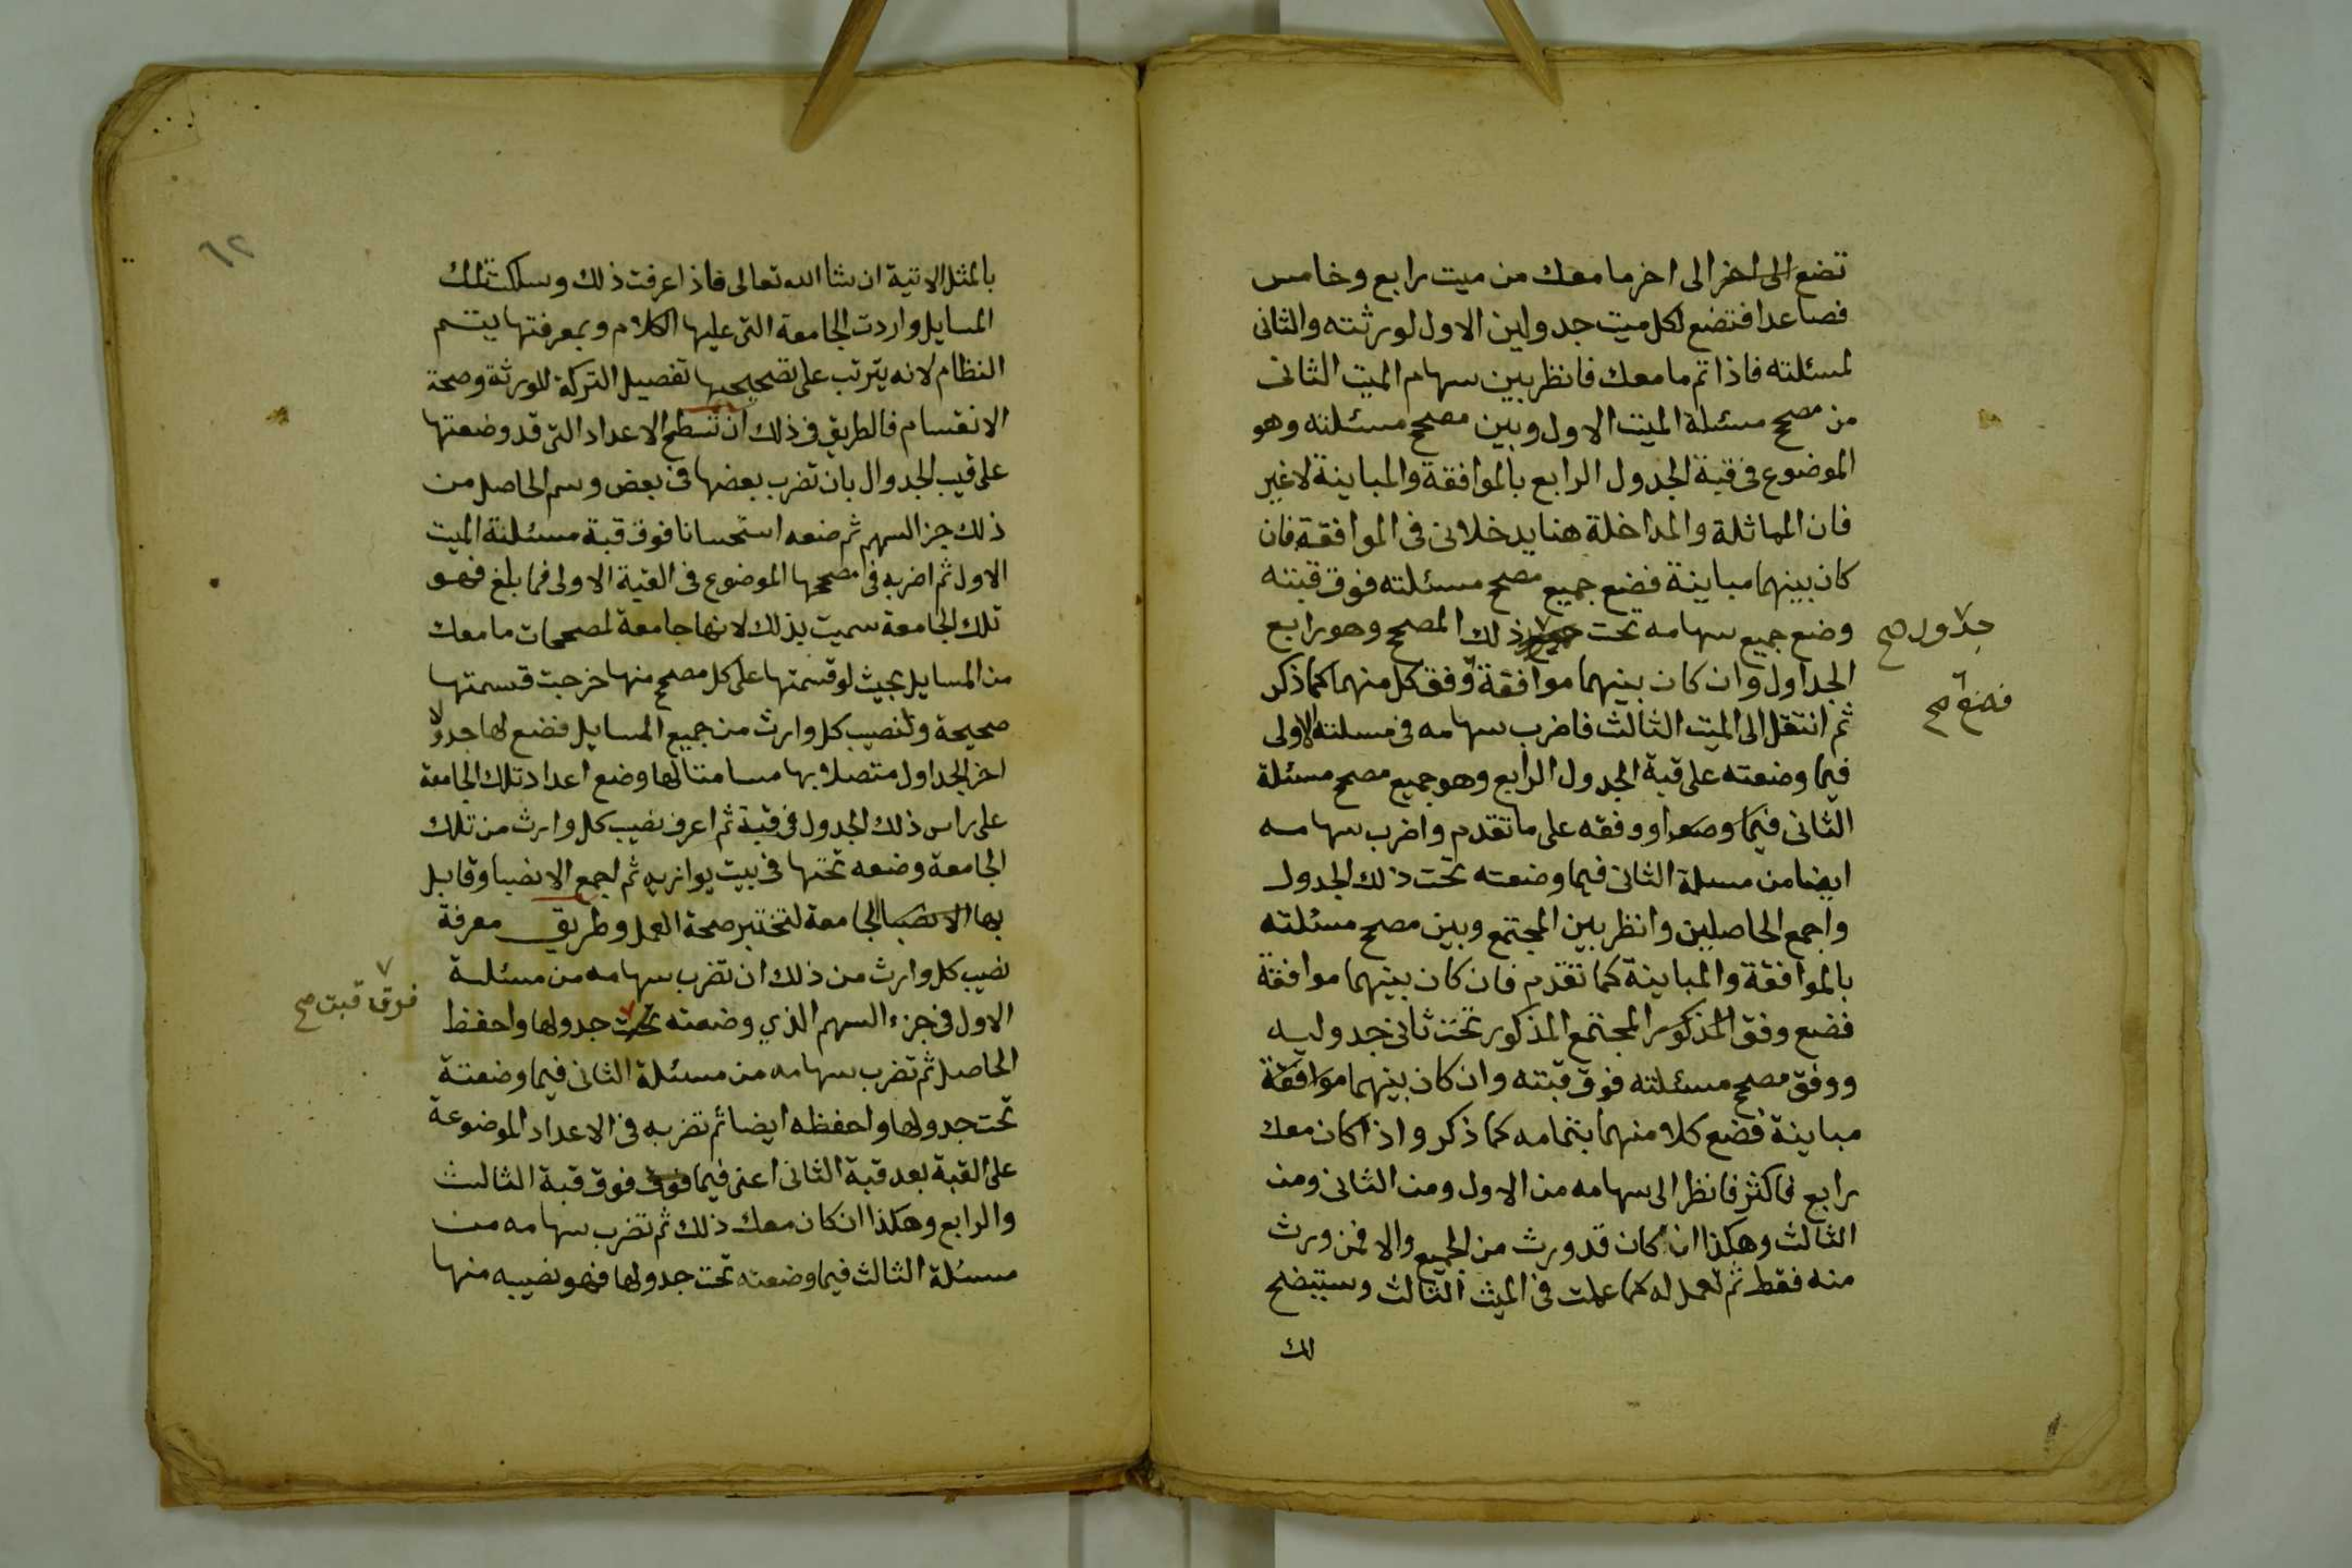 تضع الى اخر الى اخر ما معك من ميت رابع وخامس
فصاعدا فتضع لكل ميت جدولين الاول لورثته والثانى
لمسئلته فاذا تم ما معك فانظر بين سهام الميت الثانى
من مصحح مسئلة الميت الاول وبين مصحح مسئلته وهو
الموضوع فى قبة الجدول الرابع بالموافقة والمباينة لا غير
فان المماثلة والمداخلة هنا يدخلان فى الموافقة فان
كان بينهما مباينة فضع جميع مصحح مسئلته فوق قبته
وضع جميع سهامه تحت ذلك المصحح وهو رابع
جدول صح
الجداول وان كان بينهما موافقة وفق كل منهما كما ذكر
فضع صح
ثم انتقل الى الميت الثالث فاضرب سهامه فى مسلته الاولى
فيما وضعته على قبة الجدول الرابع وهو جميع مصحح مسئلة
الثانى فيما او وفقه على ما تقدم واضرب سهامه
ايضا من مسلة الثانى فيما وضعته تحت ذلك الجدول
واجمع الحاصلين وانظر بين المجتمع وبين مصحح مسئلته
بالموافقة والمباينة كما تقدم فان كان بينهما موافقة
فضع وفق المذكور المجتمع المذكور تحت ثانى جدوليه
ووفق مصحح مسئلته فوق قبته وان كان بينهما موافقة
مباينة فضع كلا منهما بتمامه كما ذكر واذا كان معك
رابع فاكثر فانظر الى سهامه من الاول ومن الثانى ومن
الثالث وهكذا ان كان قد ورث من الجميع والا فمن ورث
منه فقط ثم تعمل له كما عملت فى الميت الثالث وستيضح
لك
٦٢
بالمثل الاتية ان شا الله تعالى فاذا عرفت ذلك وسلكت تلك
المسايل واردت الجامعة التى عليها الكلام وبمعرفتها يتم
النظام لانه يترتب على تصحيحها تفصيل التركة للورثة وصحة
الانقسام فالطريق فى ذلك ان تسطح الاعداد التى قد وضعتها
على قبب الجدوال بان تضرب بعضها فى بعض وسم الحاصل من
ذلك جز السهم ثم ضعه استحسانا فوق قبة مسئلة الميت
الاول ثم اضربه فى مصححها الموضوع فى القبة الاولى فما بلغ فهو
تلك الجامعة سميت بذلك لانها جامعة لمصححات ما معك
من المسايل بحيث لو قسمتها على كل مصحح منها خرجت قسمتها
صحيحة ولنصيب كل وارث من جميع المسايل فضع لها جدولا
اخر الجداول متصلا بها مسامتا لها وضع اعداد تلك الجامعة
على راس ذلك الجدول فى قبة ثم اعرف نصيب كل وارث من تلك
الجامعة وضعه تحتها فى بيت يوازيه ثم اجمع الانصبا وقابل
بها الانصبا الجامعة لتختبر صحة العمل وطريق معرفة
نصيب كل وارث من ذلك ان تضرب سهامه من مسئلة
فوق قبت صح
الاول فى جزء السهم الذي وضعته تحت جدولها واحفظ
الحاصل ثم تضرب سهامه من مسئلة الثانى فيما وضعتة
تحت جدولها واحفظه ايضا ثم تضربه فى الاعداد الموضوعة
على القبة بعد قبة الثانى اعنى فيما فوق فوق قبة الثالث
والرابع وهكذا ان كان معك ذلك ثم تضرب سهامه من
مسئلة الثالث فيما وضعته تحت جدولها فهو نصيبه منها